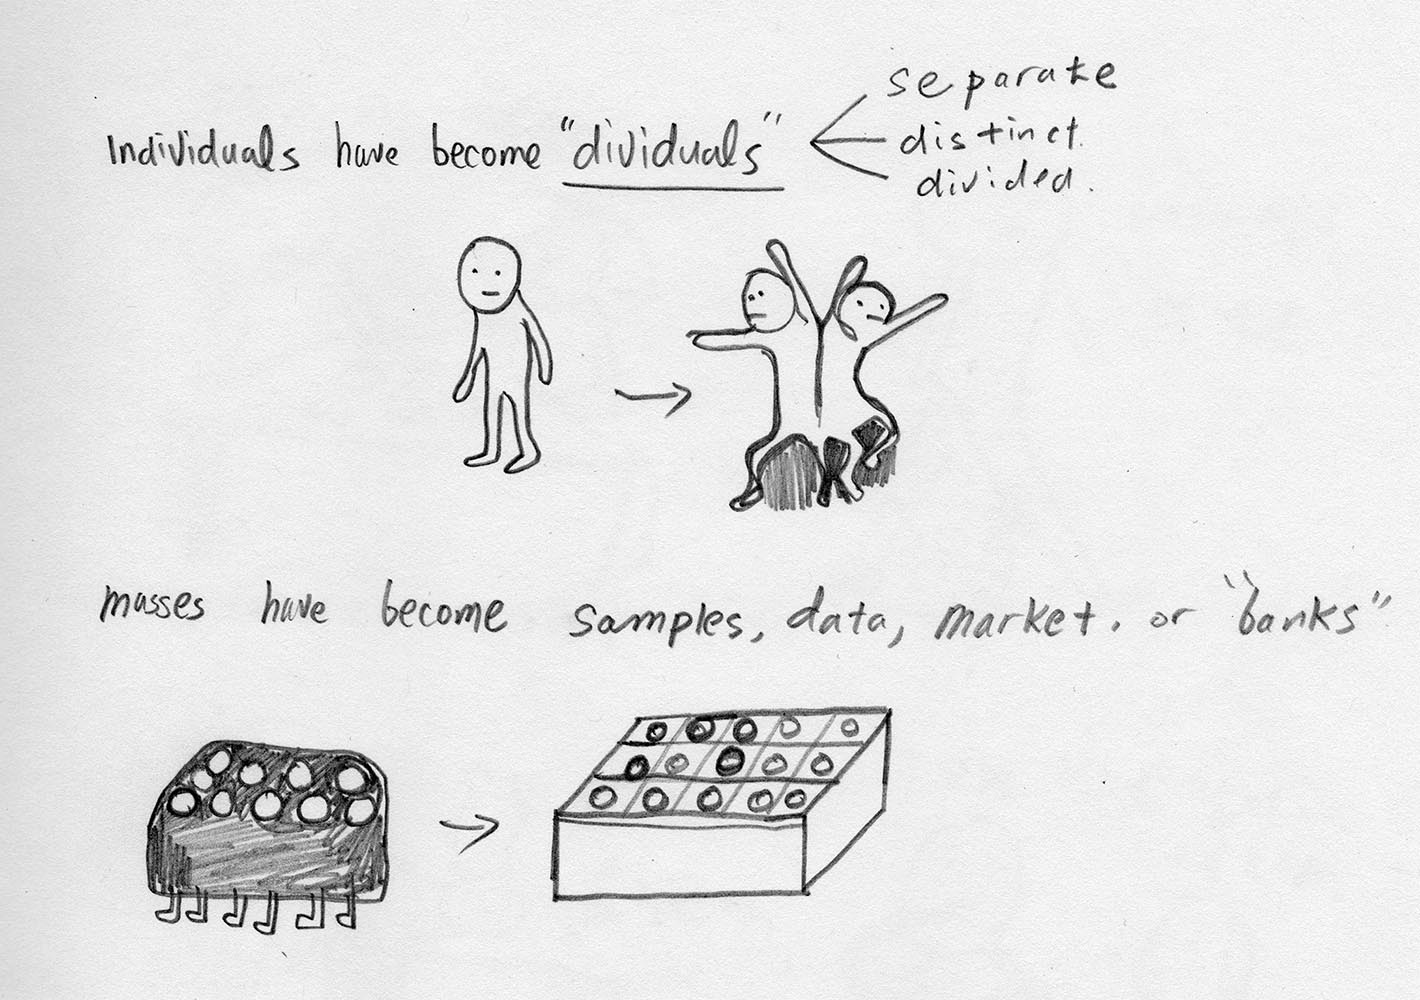 Individuals have become "dividuals"
separate
distinct.
divided.
masses have become samples, data, market. or "banks"